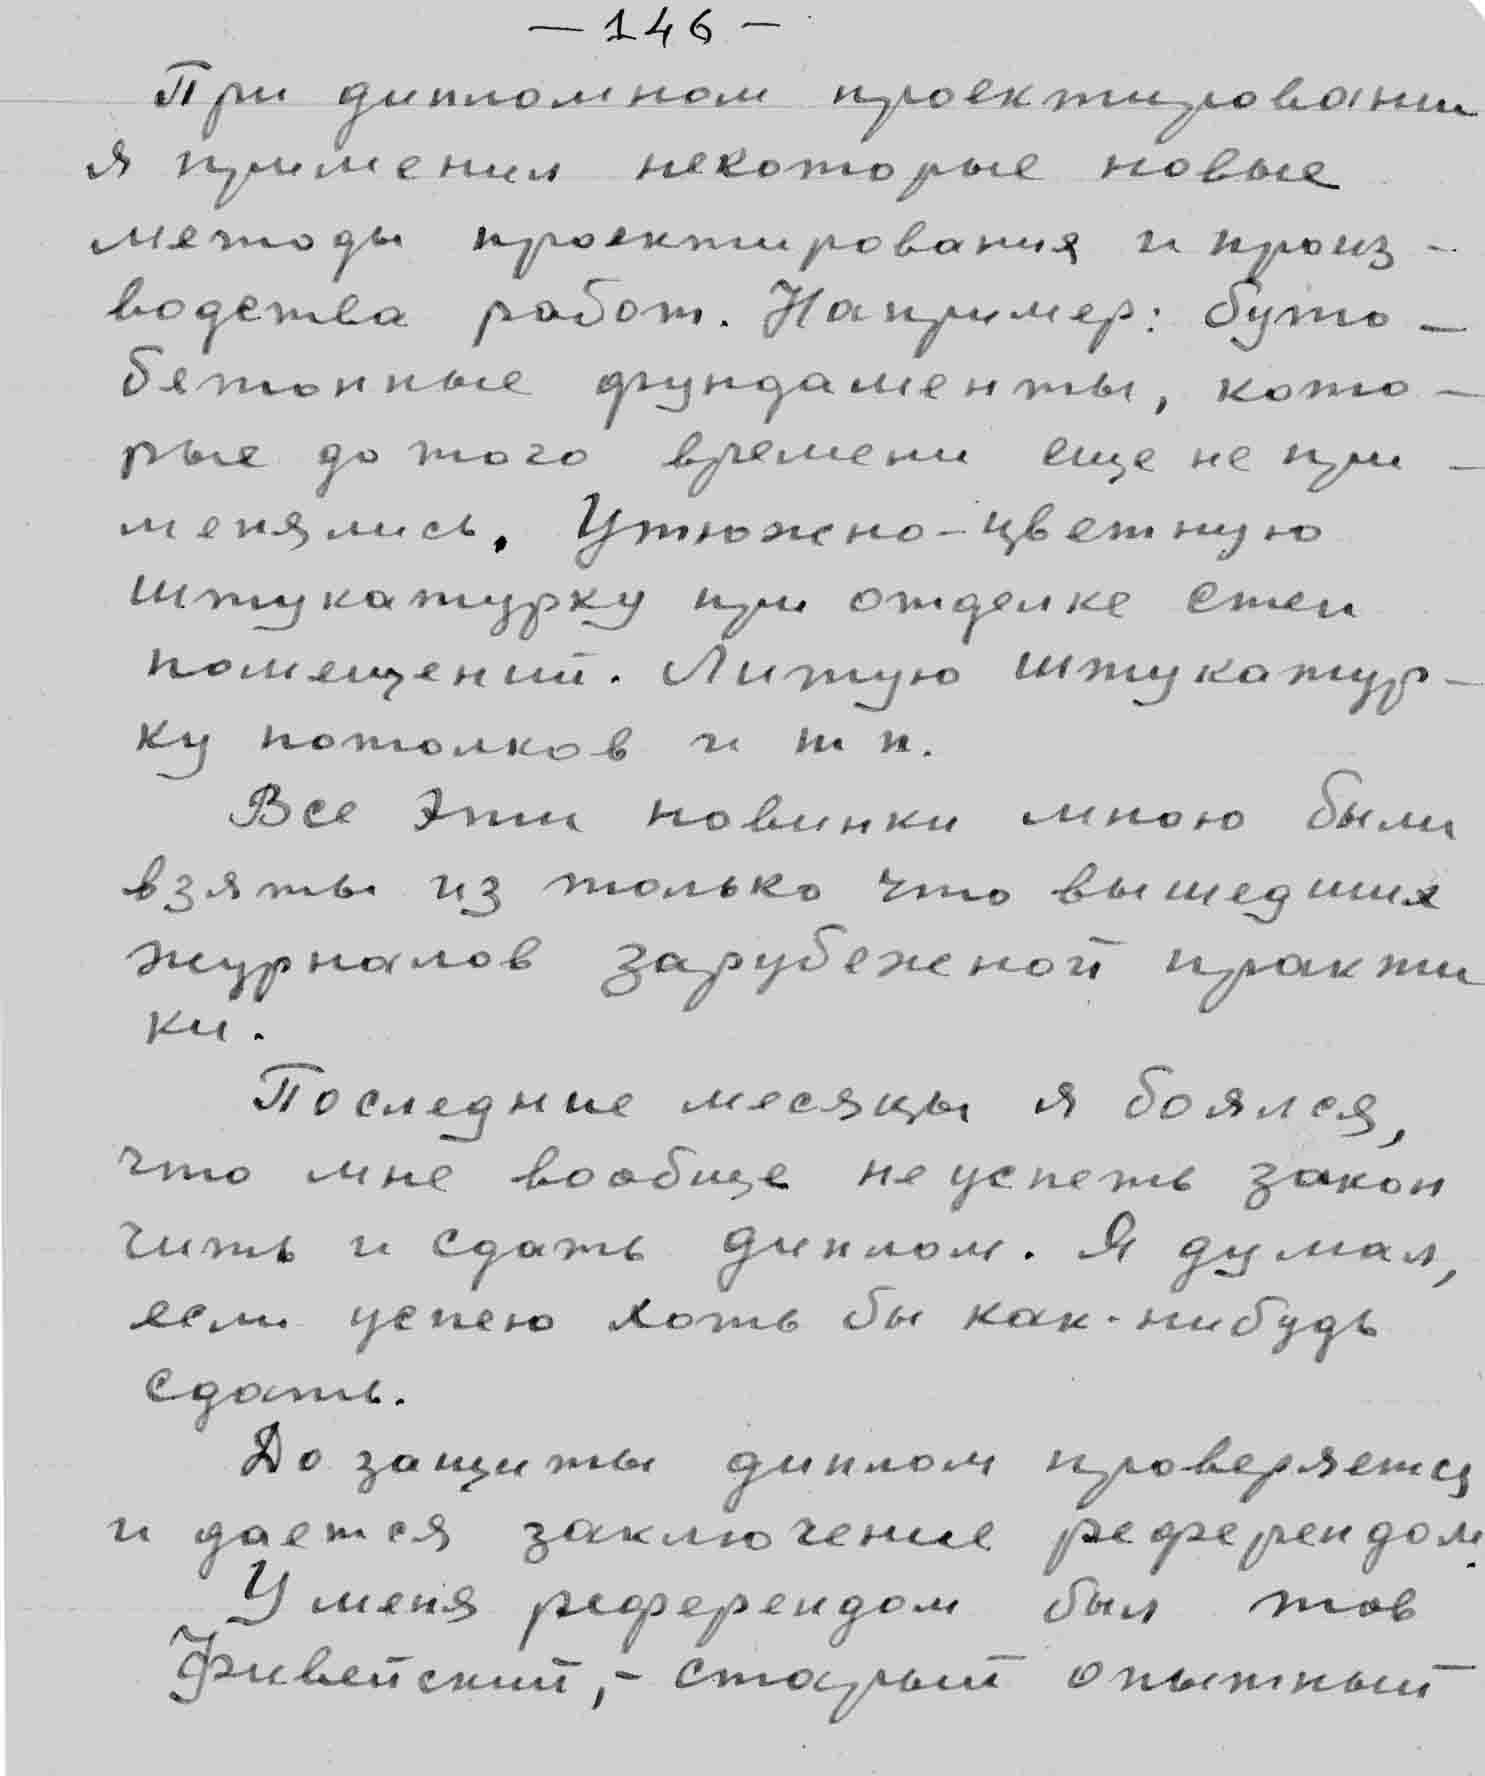 — 146 —
При дипломном проектировании
я применил некоторые новые
методы проектирования и произ-
водства работ. Например: буто-
бетонные фундаменты, кото-
рые до того времени еще не при-
менялись. Утюжно-цветную
штукатурку при отделке стен
помещений. Литую штукатур-
ку потолков и т п.
Все эти новинки мною были
взяты из только что вышедших
журналов зарубежной практи
ки.
Последние месяцы я боялся,
что мне вообще не успеть закон
чить и сдать диплом. Я думал,
если успею хоть бы как-нибудь
сдать.
До защиты диплом проверяется
и дается заключение референдом.
У меня референдом был тов
Фивейский,- старый опытный